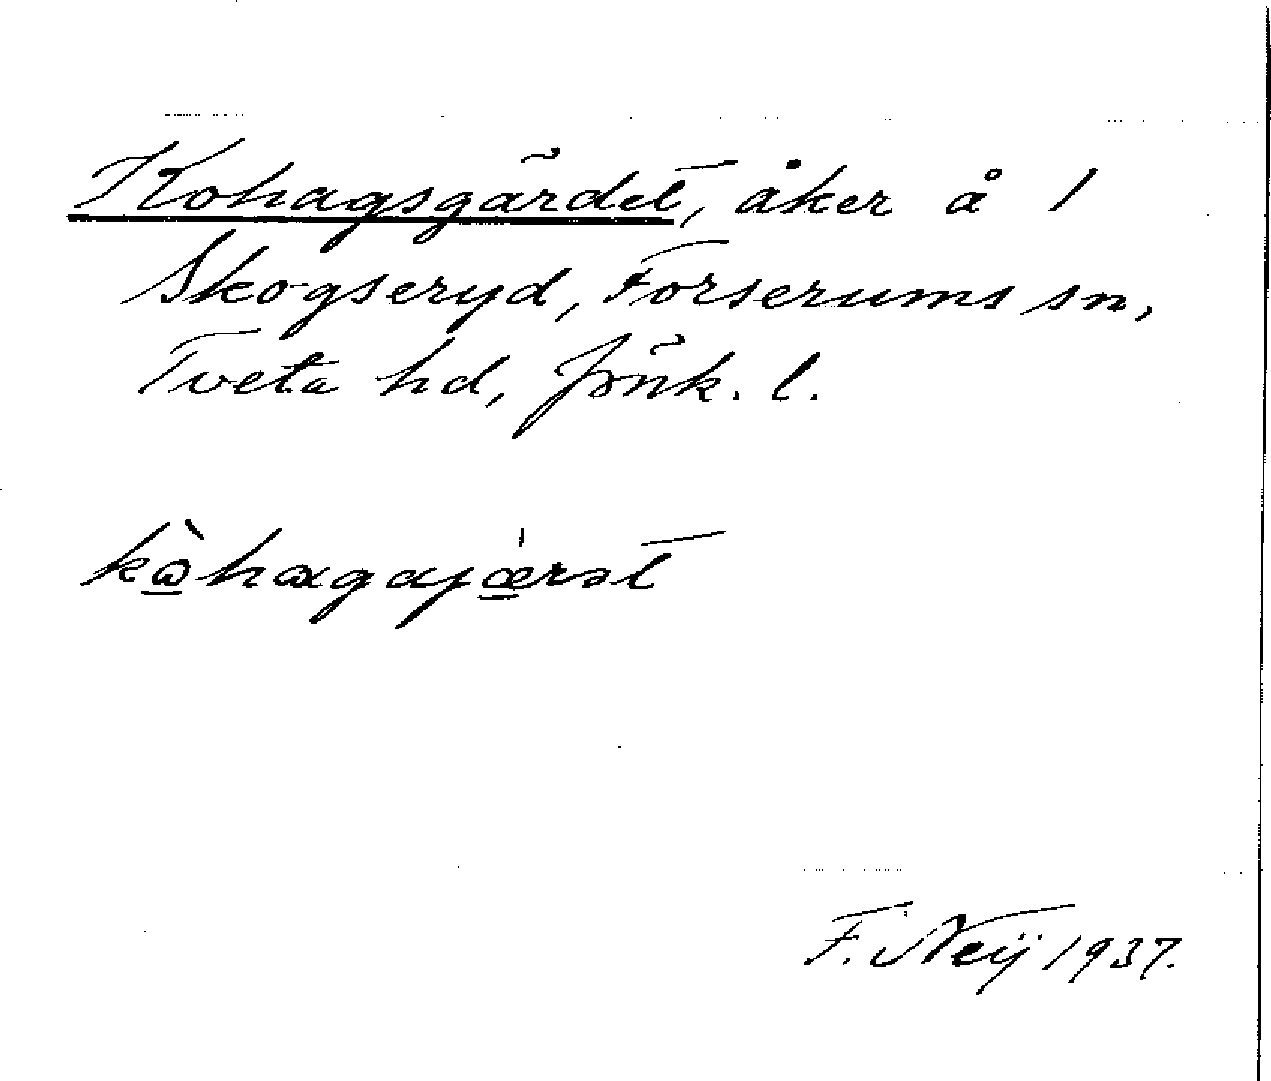 Kohagsgärdet, åker å 1
Skogseryd, Forserums sn,
Tveta hd, Jönk. l.
F. Neij 1937.